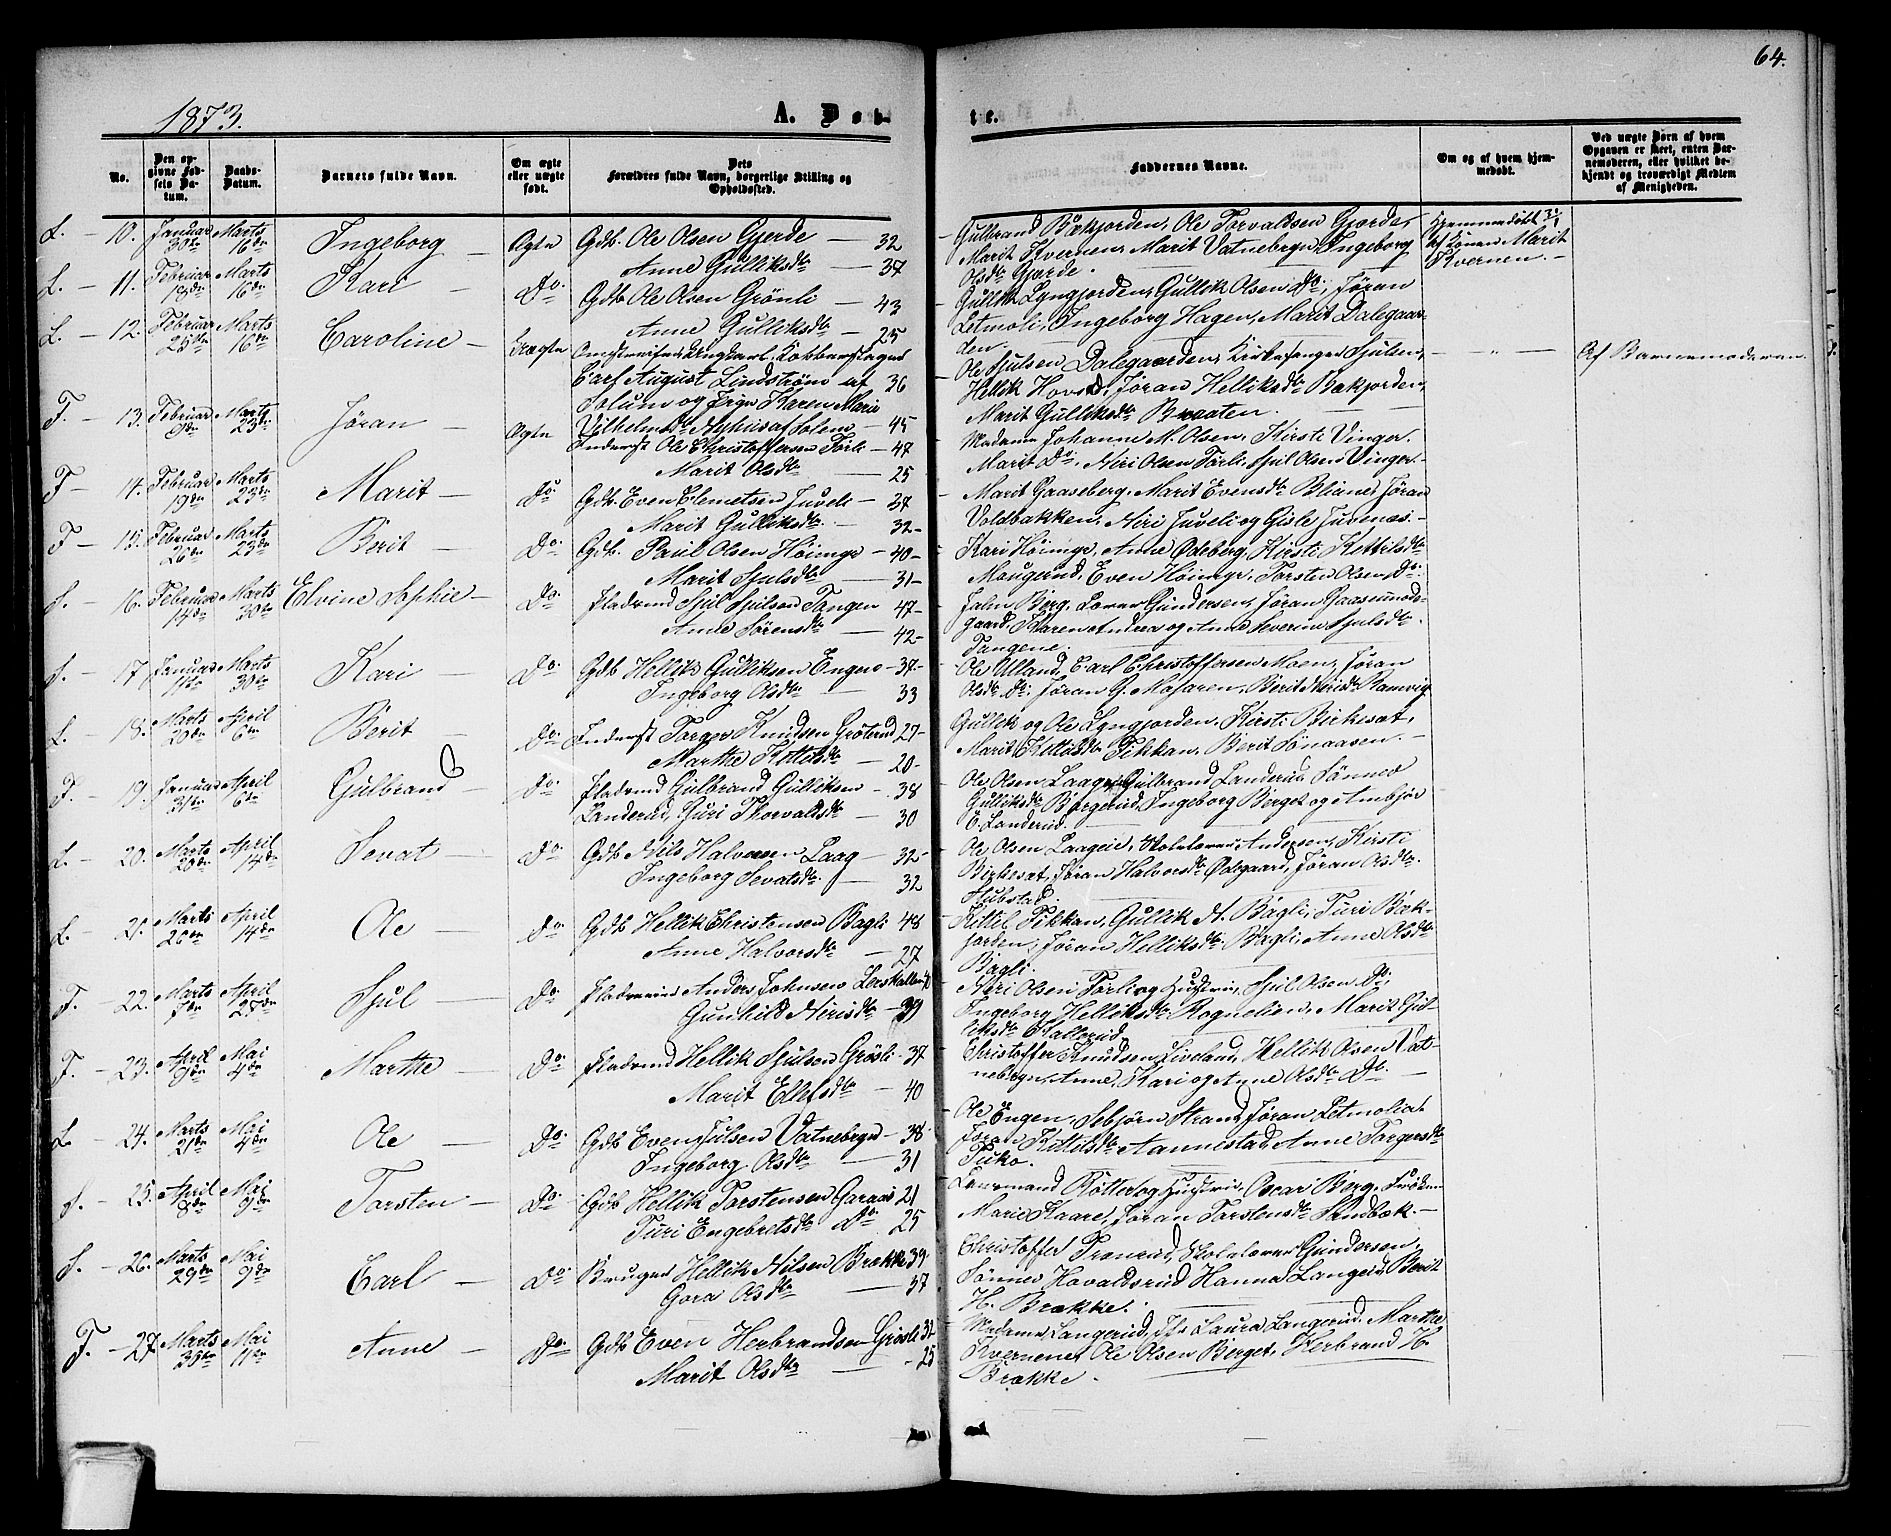 64.
1873.
A. Døb-
te.
No.
Den opgivne Fødsels Datum.
Daabs-Datum.
Barnets fulde Navn.
Om ægte eller uægte født.
Dets Forældres fulde Navn, borgerlige Stilling og Opholdssted.
Faddernes Navne.
Om og af hvem hjemmedøbt.
Ved uægte Børn af hvem Opgaven er skeet, enten Barnemoderen, eller hvilket bekjendt og troværdigt Medlem af Menigheden.
L. - 10. Januar 30te Marts 16de Ingeborg - Ægte Gdb. Ole Olsen Gjerde - 32
Anne Gulliksdtr - 37
Gulbrand Bækjorden, Ole Torvaldsen Gjerde,
Marit Kvernen, Marit Vatnebryn, Ingeborg
Olsdtr Gjerde.
Hjemmedøbt 30/1
af Konen Marit
Kvernen. -
L. - 11. Februar 18de Marts 16de Kari - Do. Gdb Ole Olsen Grönli - 43
Anne Gulliksdtr - 25
Gullik Lyngjorden, Gullik Olsen Do., Jöran
Letmoli, Ingeborg Hagen, Marit Dalegaar-
den.
L. - 12. Februar 25de Marts 16de Caroline - Uægte Omstreifer, Ungkarl, Kobberslager
Carl August Lindström af 36
Solum og Pige Karen Marie
Vilhelmsdtr Aphus af Solem - 45
Ole Sjulsen Dalegaarden, Kirkesanger Sjulsen,
Hellik Hovst, Jöran Helliksdtr Bækjorden,
Marit Gulliksdtr Braaten. -
- " - Af Barnemoderen.
F. - 13. Februar 9de Marts 23de Jöran - Ægte Inderst Ole Christoffersen Förli - 47
Marit Olsdtr - 25
Madame Johanne M. Olsen, Kirsti Vinger.
Marit Do, Niri Olsen Förli, Sjul Olsen Vinger.
F - 14. Februar 19de Marts 23de Marit - Do. Gdb Even Clemetsen Juveli - 37
Marit Gulliksdtr. - 32 -
Marit Gaaseberg, Marit Evensdtr Bliane, Jöran
Voldbakken, Niri Juveli og Gisle Juvenæs. -
F - 15. Februar 26de Marts 23de Berit - Do. Gdb. Paul Olsen Höimyr - 40 -
Marit Sjulsdtr - 31 -
Kari Höimyr, Anne Ödeberg, Kirsti Kittilsdtr
Mougerud, Even Höimyr, Torsten Olsen, Do.
S. - 16. Februar 14de Marts 30te Elvine Sophie - Do. Pladsmd Sjul Sjulsen Tangen 47 -
Anne Sörensdtr - 42 -
Jahn Berg, Lærer Gundersen, Jöran Gaasemods-
gaard, Karen Andrea og Anne Severine Sjulsdtr.
Tangene.
S. - 17 Januar 11te Marts 30te Kari - Do. Gdb Hellik Gulliksen Engen - 37 -
Ingeborg Olsdtr - 33
Ole Ulland, Carl Christoffersen Moen, Jöran
Olsdtr Do, Jöran G. Moseren, Berit Nirisdtr Ramvig
L. - 18. Marts 20de April 6te Berit - Do. Inderst Torger Knudsen Gröterud 27 -
Marthe Kittelsdtr - 20 -
Gullik og Ole Lyngjorden, Kirsti Birkesæt,
Marit Kittilsdtr Fikkan, Berit Sönaasen. -
F. - 19. Januar 31te April 6te Gulbrand - Do. Pladsmd Gulbrand Gulliksen - 38
Landerud, Guri Thorvaldsdtr - 30
Ole Olsen Laagre, Gulbrand Landerud, Sönnev
Gulliksdtr Börgerud, Ingeborg Berget og Ambjör
E. Landerud. -
L. - 20. Marts 20de April 14de Sevat - Do. Gdb Nils Halvorsen Laag - 32 -
Ingeborg Sevatsdtr. - 32
Ole Olsen Laageie, Skolelærer Anderson, Kirsti
Birkesæt, Jöran Halvorsdtr Ödegaard, Jöran Olsdtr.
Hubstad.
L. - 21. Marts 26de April 14de Ole - Do. Gdb Hellik Christensen Bagli 48
Anne Halvorsdtr - 27
Kittel Fikkan, Gullik N. Bagli, Turi Bæk-
jorden, Jöran Helliksdtr. Bagli, Anne Olsdtr
Bagli.
F. - 22. Marts 7de April 27de Sjul - Do. Pladsmd Anders Johnsen Lerskallen
Gunhild Nirisdtr - 39
Niri Olsen Förli og Hustru, Sjul Olsen Do,
Ingeborg Helliksdtr Rognelien, Marit Gul-
liksdtr Hallerud.
F. - 23. April 9de Mai 4de Marthe - Do. Pladsmd Hellik Sjulsen Grösli - 37
Marit Elhfsdtr - 40
Christoffer Knudsen Liveland, Hellik Olsen Vat-
nebryn, Anne, Kari og Anne Olsdtr Do. -
L. - 24. Marts 21de Mai 4de Ole - Do. Gdb Even Julsen Vatnebryn - 38
Ingeborg Olsdtr - 31
Ole Engen, Sebjörn Strand, Jöran Letmoliat
Jöran Kittelsdtr Aannestad, Anne Torgersdtr
Puko.
S. - 25. April 8de Mai 9de Torsten - Do. Gdb Hellik Torstensen Garaas 21
Turi Engebretsdtr Do. 25
Lensmand Röttev og Hustru, Oscar Berg, Fröken
Marie Kaare, Jöran Torstensdtr Sandbæk. -
S. - 26. Marts 29de Mai 9de Carl - Do. Bruger Hellik Nilsen Brække 39.
Gora Olsdtr - 37
Christoffer Tranrud, Skolelærer Gundersen,
Sönnev Hovaldsrud, Hanna Langeid, Berit
H. Brække.
F. - 27. Marts 30te Mai 11te Anne - Do. Gdb Even Herbrandsen Grösli 32
Marit Olsdtr - 25
Madame Langerud, Laura Langerud, Marthe
Kvernene, Ole Olsen Berget, Herbrand H.
Brække.